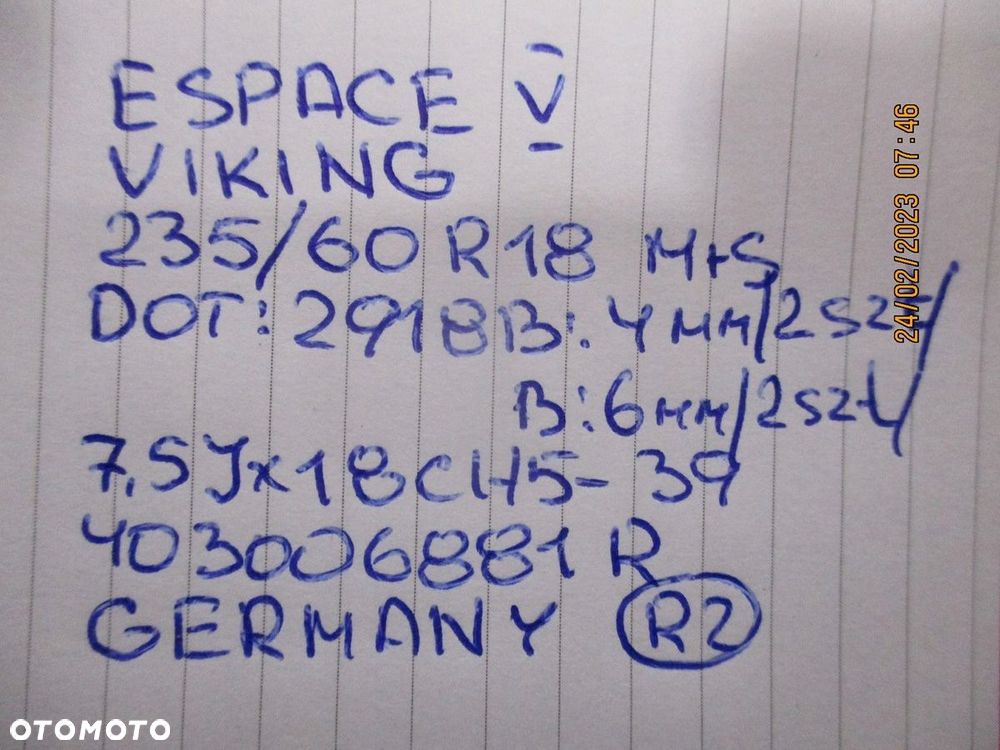 ESPACE V
VIKING
235/60 R18 M+S
DOT: 2918 B: 4мм/2szt/
B: 6мм/2szt/
7,5Jx18CH5-39
403006881R
GERMANY R2
24/02/2023 07:46
OTOMOTO